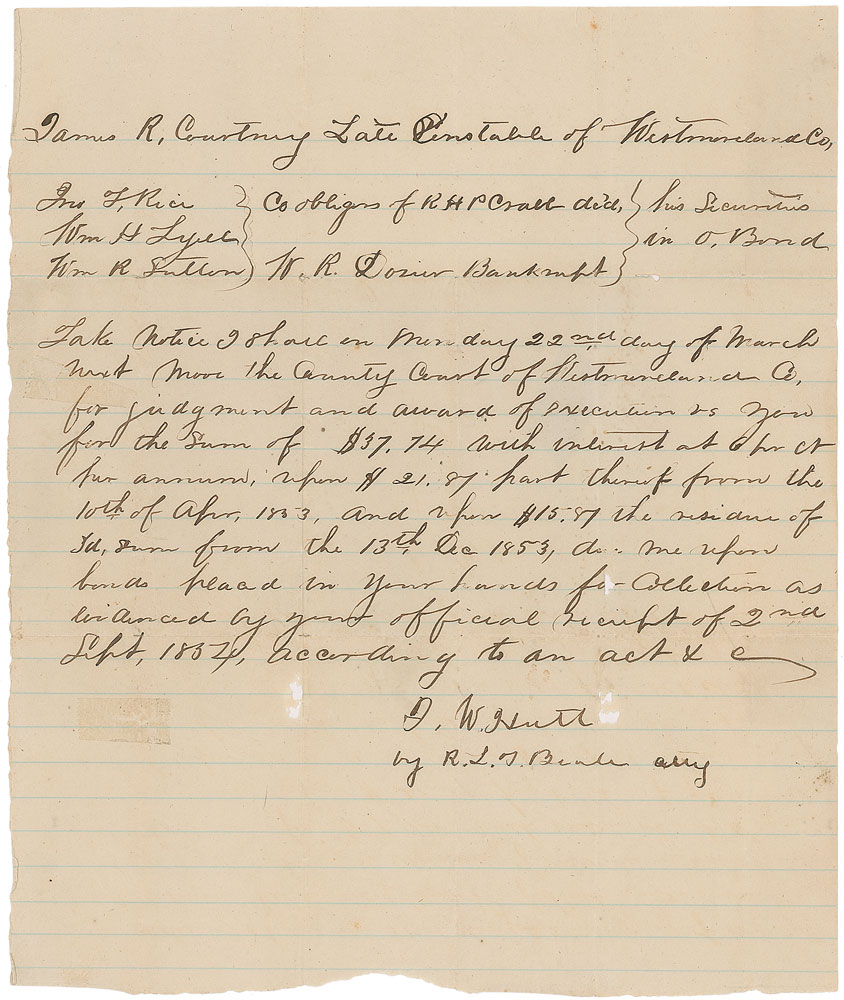 James R, Courtney Late Constable of Westmoreland Co,
Jno T, Rice } Co obligors of R H P Crabb decd, } his Securities
Wm H Lyell in O, Bond
Wm R Sutton } W. R. Dozier Bankrupt }
Take notice I shall on Monday 22nd day of March
next move the County Court of Westmoreland Co,
for judgment and award of execution vs you
for the sum of $37.74 with interest at 6 pr ct
per annum, upon $21.87 part thereof from the
10th of Apr, 1853, and upon $15.87 the residue of
Sd, sum from the 13th Dec 1853, due me upon
bonds placed in your hands for collection as
evidenced by your official receipt of 2nd
Sept, 1852, according to an act & c
J. W. Hutt
by R. L. T. Beale atty